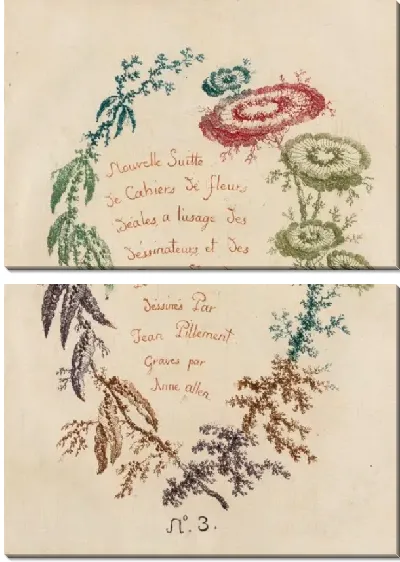 Nouvelle Suitte
De Cahiers de fleurs
idéales a lusage des
Dessinateurs et des
Déssinés Par
Jean Pillement.
Gravés par
Anne allen
N°. 3.